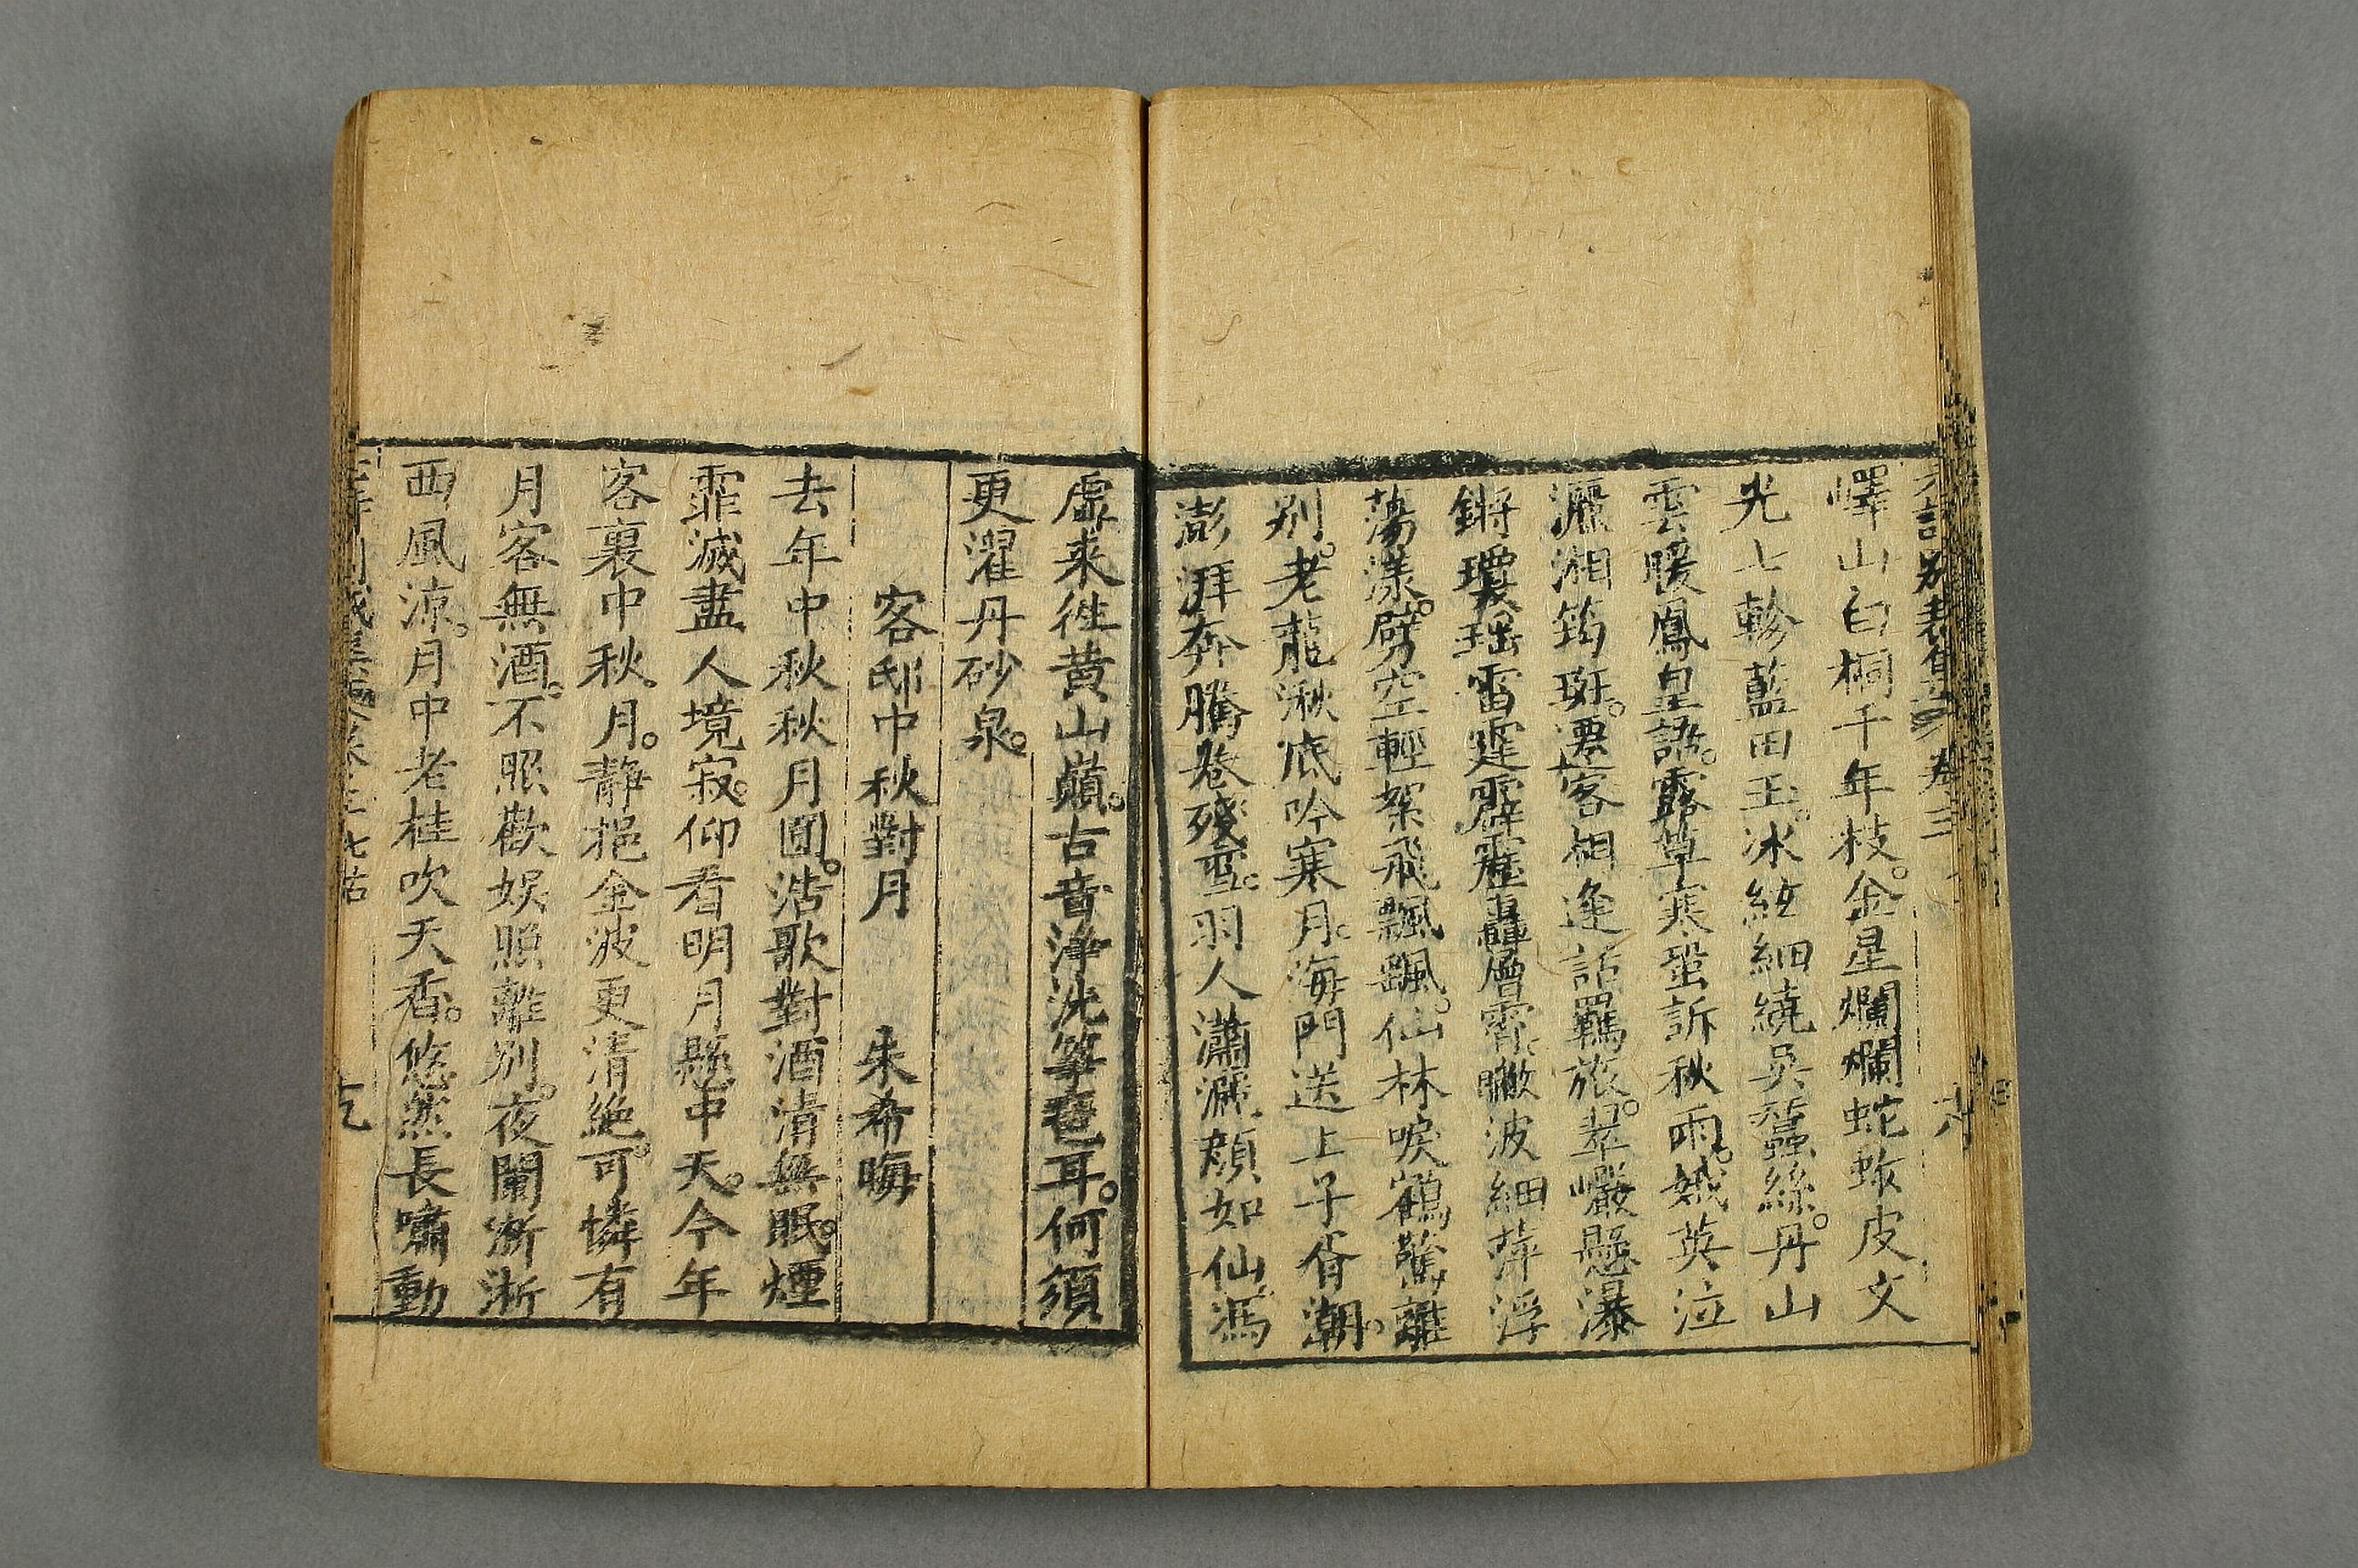 嶧山白桐千年枝。金星爛爛蛇蚹皮文
光七軫藍田玉。冰絃細繞吳蠶絲。丹山
雲暖鳳皇語。露草寒蛩訴秋雨。娥英泣
灑湘筠斑。遷客相逢話羈旅。翠巖懸瀑
鏘瓊瑤雷霆霹靂轟層霄。瞰波細萍浮
蕩漾。劈空輕絮飛飄颻。仙林唳鶴驚離
别。老龍湫底吟寒月。海門送上子胥潮。
澎湃奔騰卷殘雪。羽人瀟灑顔如仙。馮
虛来徃黄山巔。古音淨洗箏琶耳。何須
更濯丹砂泉。
客邸中秋對月 朱希晦
去年中秋秋月圓。浩歌對酒清無眠。煙
霏滅盡人境寂。仰看明月懸中天。今年
客裏中秋月。靜挹金波更清絶。可憐有
月客無酒。不照歡娛照離别。夜闌淅淅
西風涼。月中老桂吹天香。悠然長嘯動